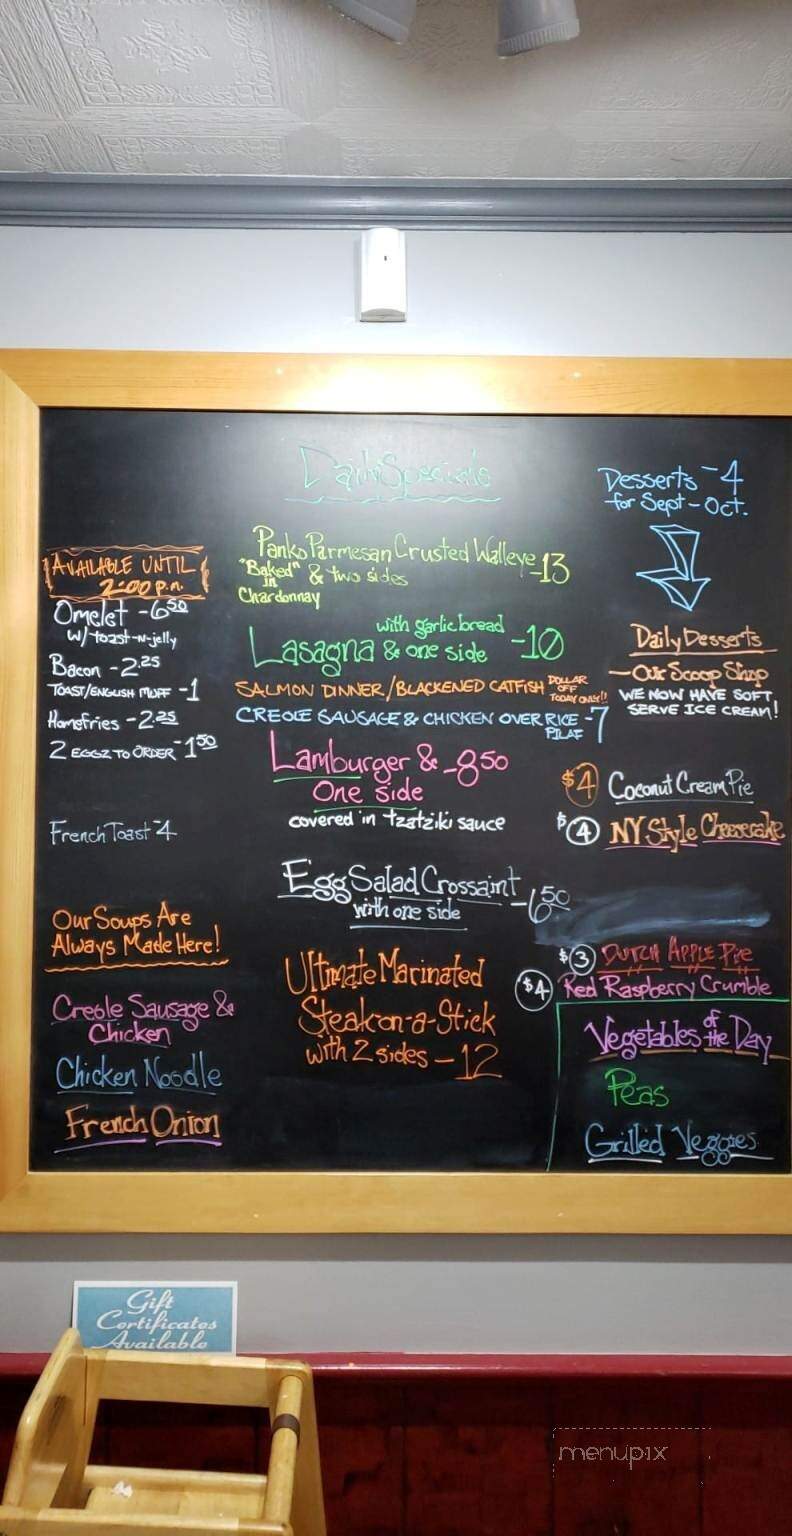 Daily Specials
Panko Parmesan Crusted Walleye -13
"Baked" & two sides
in
Chardonnay
with garlic bread
Lasagna & one side -10
SALMON DINNER/BLACKENED CATFISH DOLLAR OFF TODAY ONLY!!
CREOLE SAUSAGE & CHICKEN OVER RICE PILAF -7
Lamburger & -8.50
One side
covered in tzatziki sauce
Egg Salad Crossaint -6.50
with one side
Ultimate Marinated
Steak-on-a-Stick
with 2 sides - 12
AVAILABLE UNTIL
2:00 p.m.
Omelet - 6.50
w/toast-n-jelly
Bacon - 2.25
TOAST/ENGLISH MUFF - 1
Homefries - 2.25
2 EGGZ TO ORDER - 1.50
French Toast - 4
Our Soups Are
Always Made Here!
Creole Sausage &
Chicken
Chicken Noodle
French Onion
Desserts - 4
for Sept - Oct.
Daily Desserts
- Our Scoop Shop
WE NOW HAVE SOFT
SERVE ICE CREAM!
$4 Coconut Cream Pie
$4 NY Style Cheesecake
$3 DUTCH APPLE PIE
$4 Red Raspberry Crumble
Vegetables of the Day
Peas
Grilled Veggies
Gift
Certificates
Available
menupix